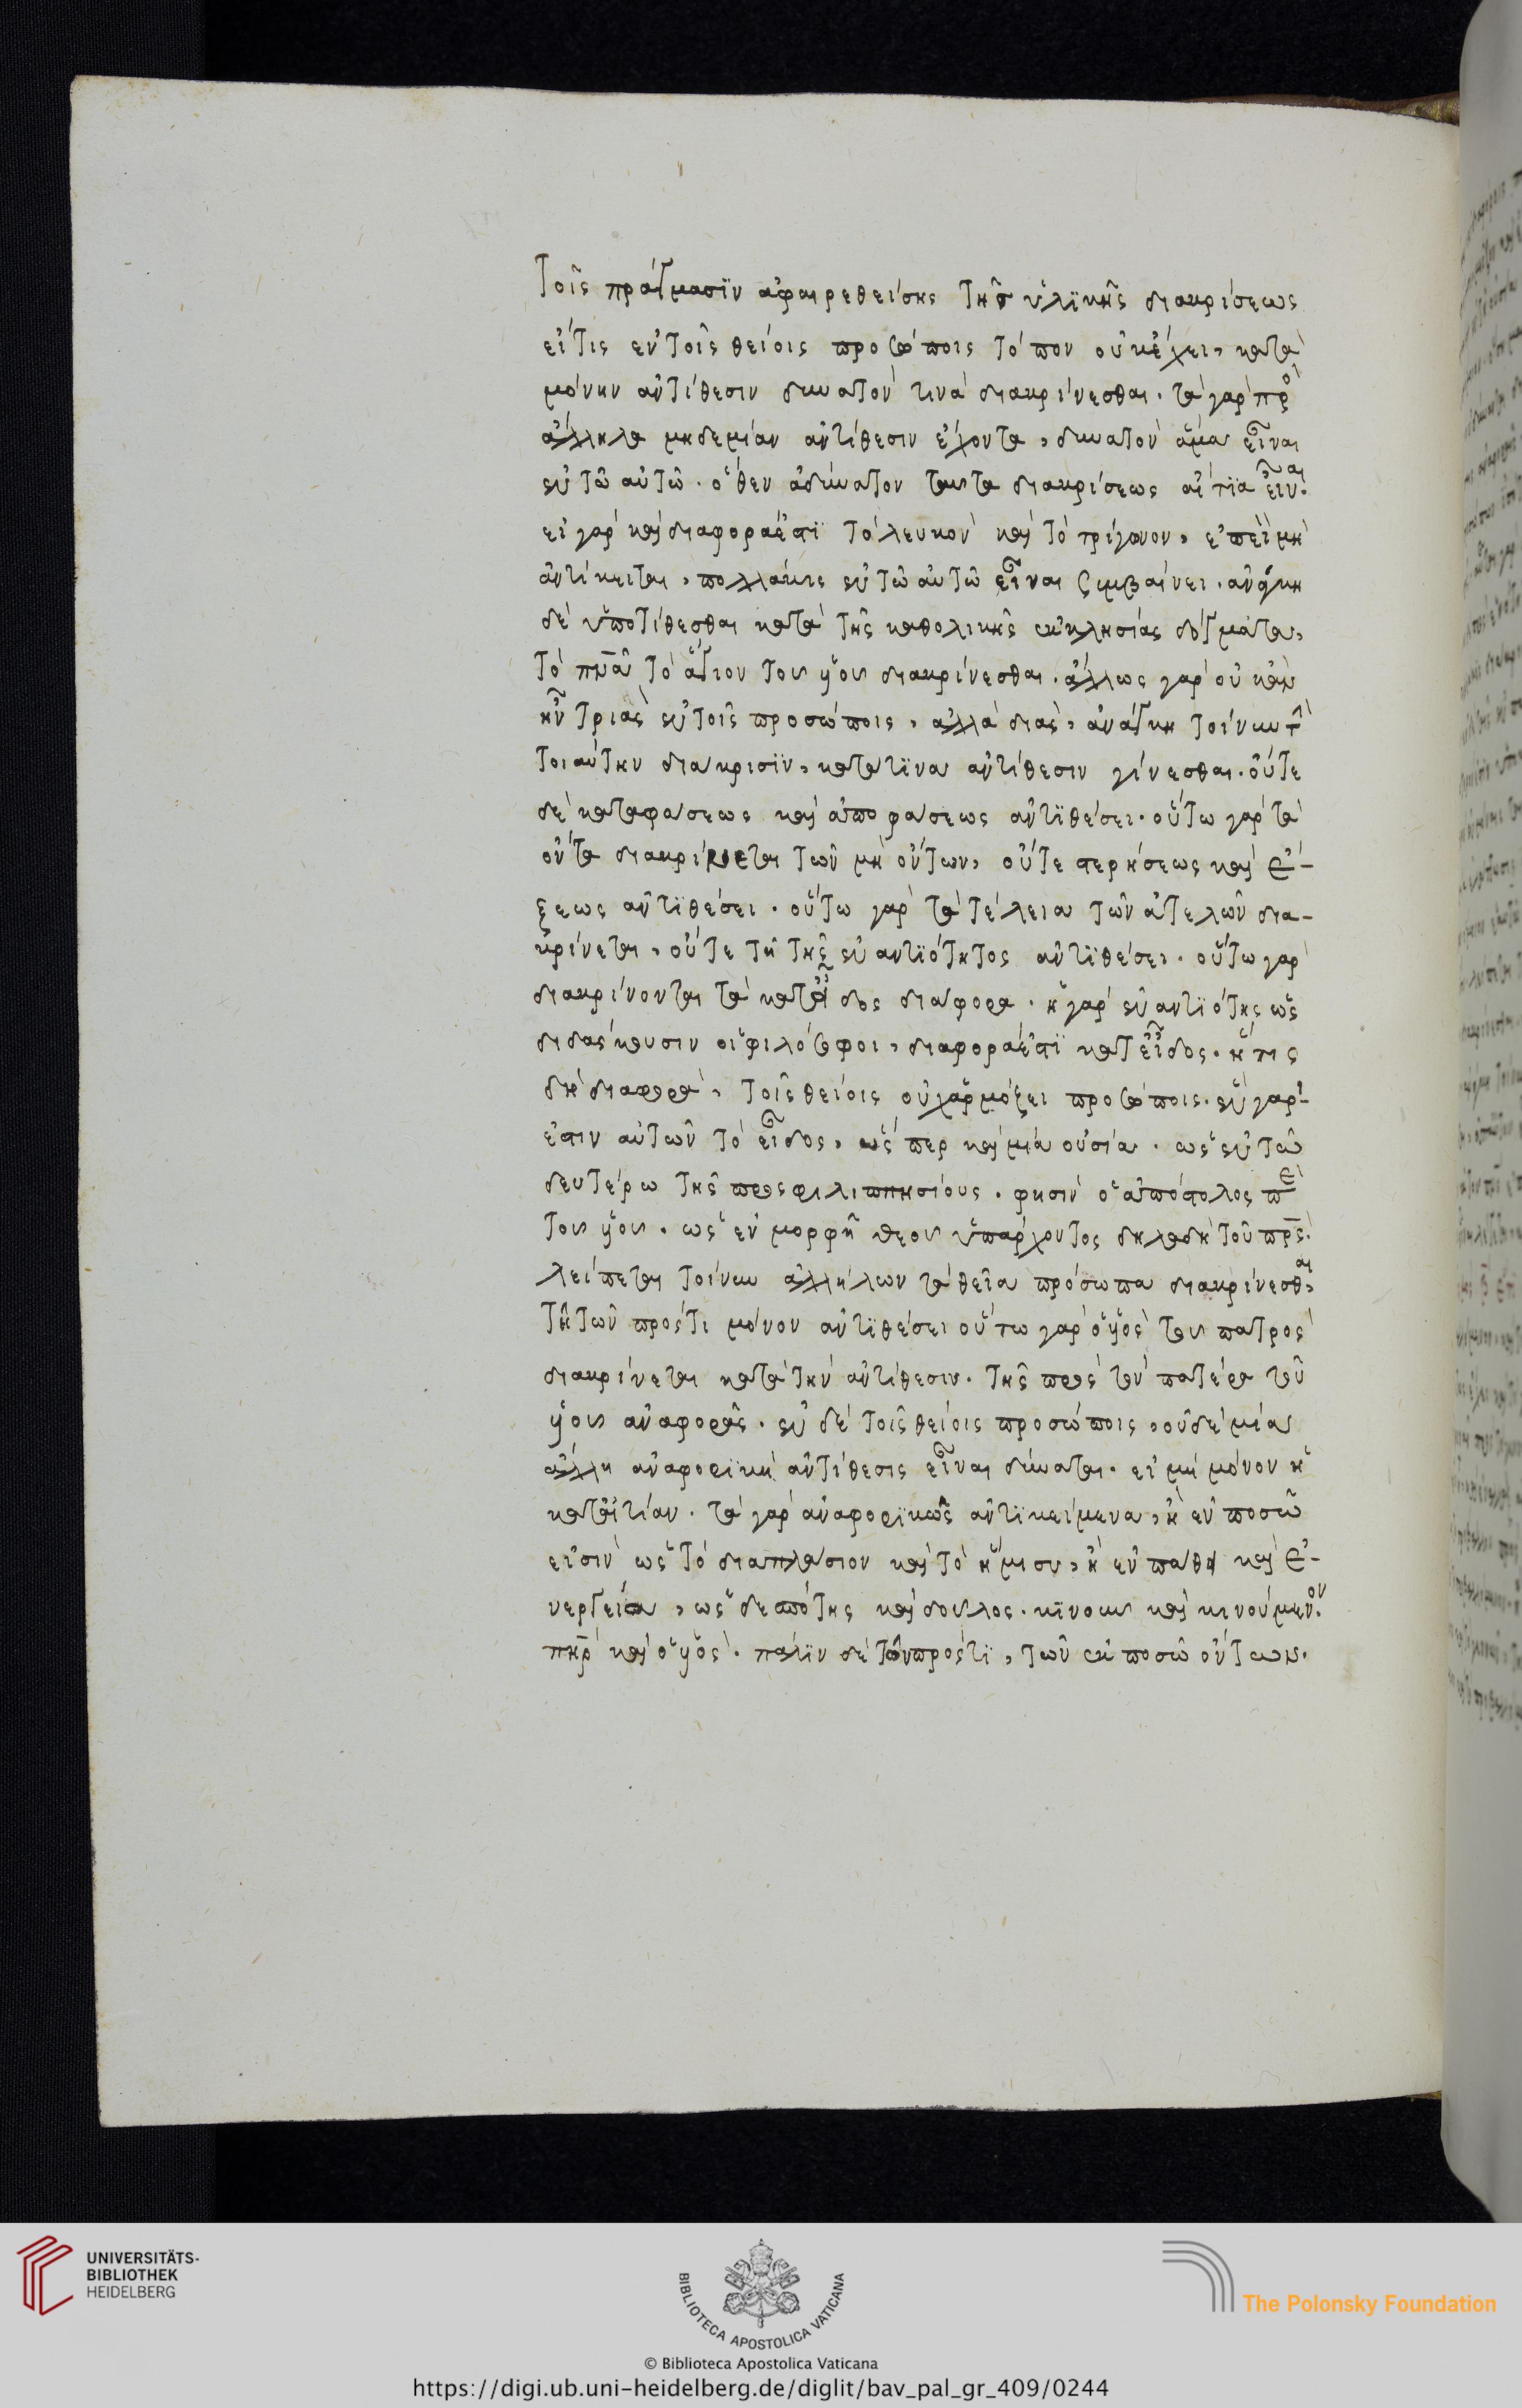 τοῖς πράγμασϊν ἀφαιρεθείσης τῆς ὑλϊκῆς διακρίσεως
εἴτις ἐν τοῖς θείοις προσώποις τόπον οὐκ ἔχει, κατὰ
μόνην ἀντίθεσιν δυνατόν τινα διακρίνεσθαι. τὰ γὰρ πρὸς
ἄλληλα μηδεμίαν ἀντίθεσιν ἔχοντα, δυνατὸν ἅμα εἶναι
ἐν τῶ αὐτῶ. ὅθεν ἀδύνατον ταῦτα διακρίσεως αἴτϊα εἶναι.
εἰ γὰρ καὶ διαφορά ἐστϊ τὸ λευκὸν καὶ τὸ τρίγωνον, ἐπεὶ μὴ
ἀντίκειται, πολλάκις ἐν τῶ αὐτῶ εἶναι συμβαίνει. ἀνάγκη
δὲ ὑποτίθεσθαι κατὰ τῆς καθολικῆς ἐκκλησίας δόγματα,
τὸ πνᾶ τὸ ἅγιον τοῦ υἱοῦ διακρίνεσθαι. ἄλλως γὰρ οὐκ ἂν
ἦν τριὰς ἐν τοῖς προσώποις, ἀλλὰ διὰς, ἀνάγκη τοίνυν τ̂
τοιαύτην διάκρισϊν, κατά τϊνα ἀντίθεσιν γίνεσθαι. οὔτε
δὲ καταφάσεως καὶ ἀποφάσεως ἀντϊθέσει. οὕτω γὰρ τὰ
ὄντα διακρίνεται τῶν μὴ ὄντων, οὔτε στερήσεως καὶ ἕ-
ξεως ἀντϊθέσει. οὕτω γὰρ τὰ τέλεια τῶν ἀτελῶν δια-
κρίνεται, οὔτε τῆ τῆς ἐναντϊότητος ἀντϊθέσει. οὕτω γὰρ
διακρίνονται τὰ κατ' εἶδος διάφορα. ἡ γὰρ ἐναντϊότης ὡς
διδάσκουσιν οἱ φιλόσοφοι, διαφορά ἐστϊ κατ εἶδος. ἥτις
δὴ διαφορὰ, τοῖς θείοις οὐχ ἁρμόζει προσώποις. ἓν γάρ
ἐστιν αὐτῶν τὸ εἶδος, ὥσπερ καὶ μία οὐσία. ὡς ἐν τῶ
δευτέρω τῆς πρὸς φιλιππησίους. φησὶν ὁ ἀπόστολος πὲ
τοῦ υἱοῦ. ὡς ἐν μορφῆ θεοῦ ὑπάρχοντος δηλαδὴ τοῦ πρς.
λείπεται τοίνυν ἀλλήλων τὰ θεῖα πρόσωπα διακρίνεσθαι,
τῆ τῶν πρός τι μόνον ἀντϊθέσει οὕτω γὰρ ὁ υἱὸς τοῦ πατρὸς
διακρίνεται κατὰ τὴν ἀντίθεσιν. τῆς πρὸς τὸν πατέρα τοῦ
υἱοῦ ἀναφορᾶς. ἐν δὲ τοῖς θείοις προσώποις, οὐδεμία
ἄλλη ἀναφορϊκὴ ἀντίθεσις εἶναι δύναται. εἰ μὴ μόνον ἡ
κατ' αἰτίαν. τὰ γὰρ ἀναφορϊκῶς ἀντϊκείμενα, ἢ ἐν ποσῶ
εἰσὶν ὡς τὸ διαπλάσιον καὶ τὸ ἥμισυ, ἢ ἐν πάθει καὶ ἐ-
νεργεία, ὡς δεσπότης καὶ δοῦλος. κϊνοῦν καὶ κινούμενον.
πηρ καὶ ὁ υἱὸς. πάλϊν δὲ τῶν πρός τϊ, τῶν ἐκ ποσῶ ὄντων.
UNIVERSITÄTS-
BIBLIOTHEK
HEIDELBERG
BIBLIOTECA APOSTOLICA VATICANA
The Polonsky Foundation
© Biblioteca Apostolica Vaticana
https://digi.ub.uni-heidelberg.de/diglit/bav_pal_gr_409/0244